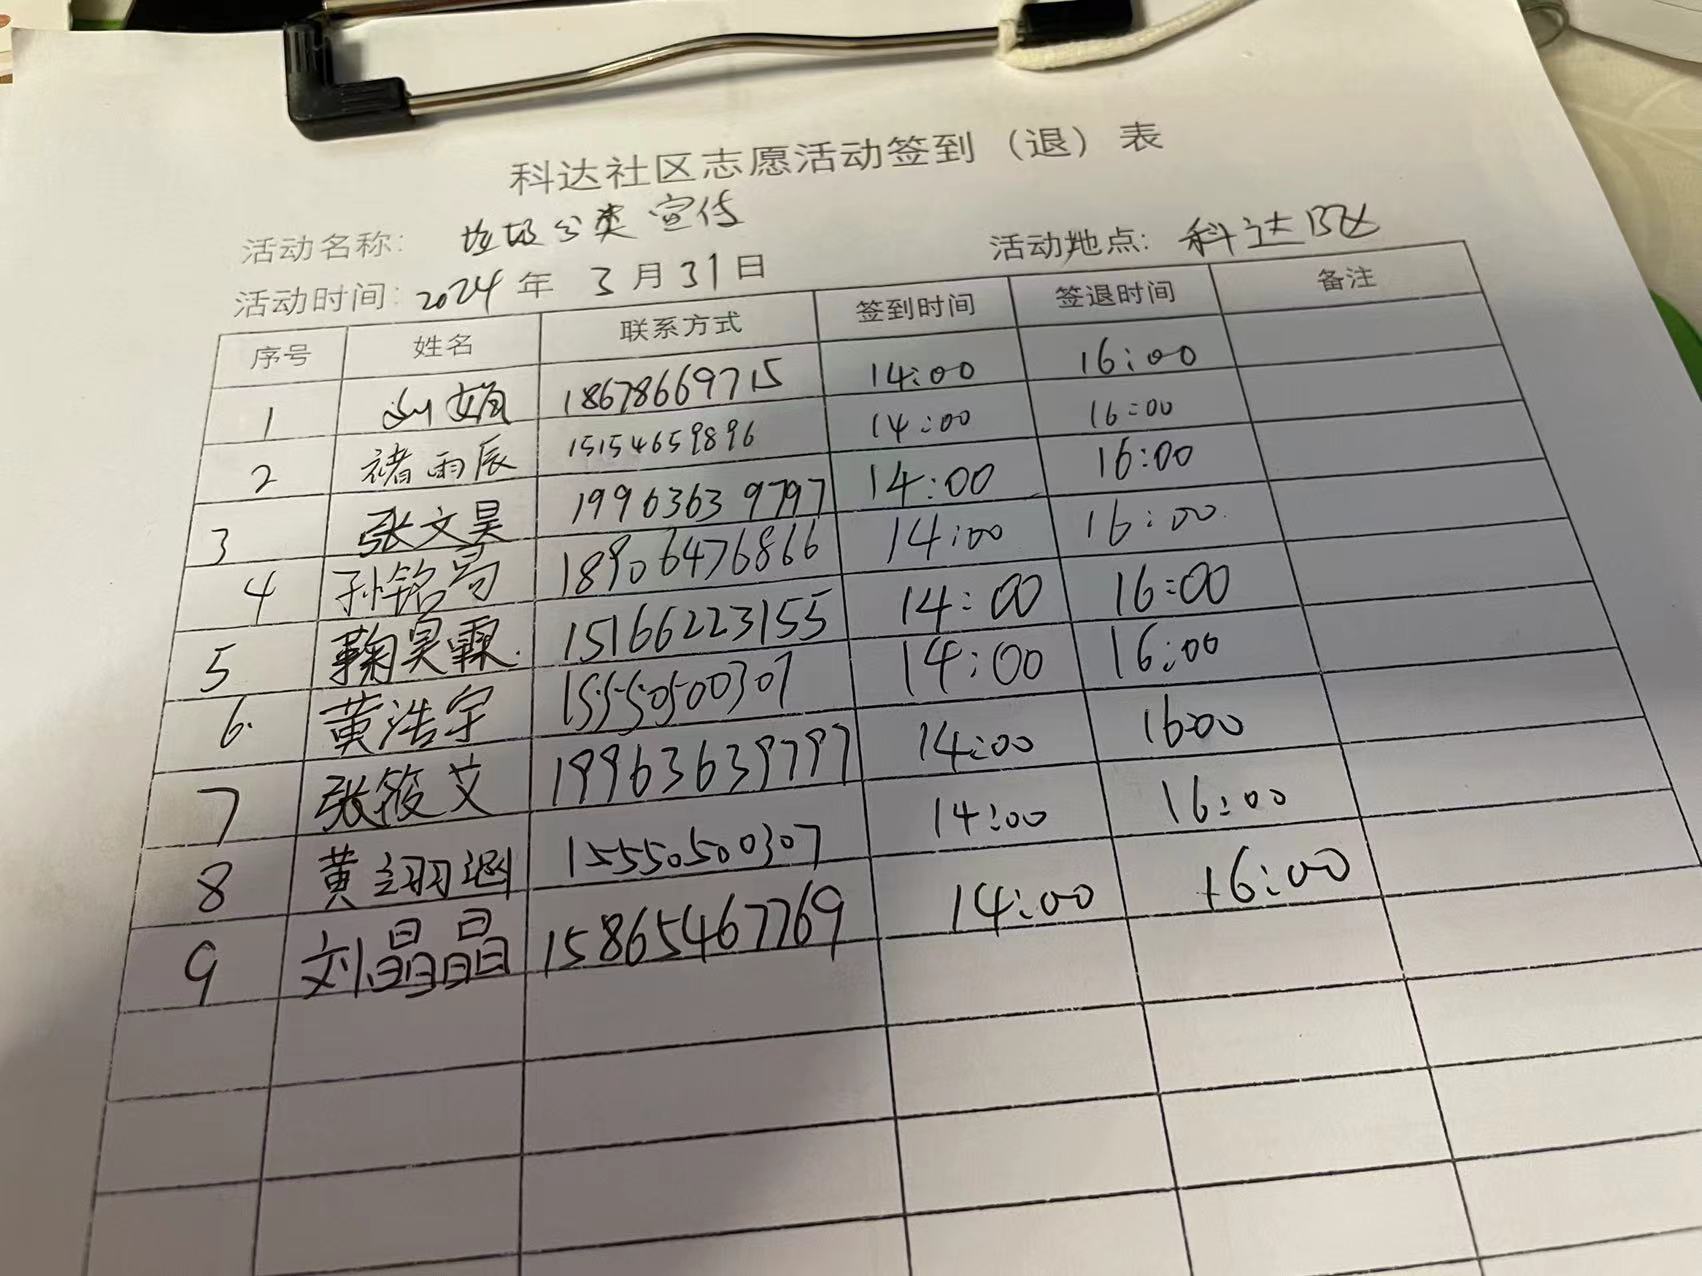 科达社区志愿活动签到（退）表
活动名称： 垃圾分类宣传 活动地点： 科达
活动时间：2024年 3月31日
序号 姓名 联系方式 签到时间 签退时间 备注
1 刘娟 18678669715 14:00 16:00
2 褚雨辰 15154659896 14:00 16:00
3 张文昊 19963639797 14:00 16:00
4 孙铭 18906476866 14:00 16:00
5 鞠昊霖 15166223155 14:00 16:00
6. 黄浩宇 15550500307 14:00 16:00
7 张筱艾 19963639797 14:00 1600
8 黄翊 15550500307 14:00 16:00
9 刘晶晶 15865467769 14:00 16:00